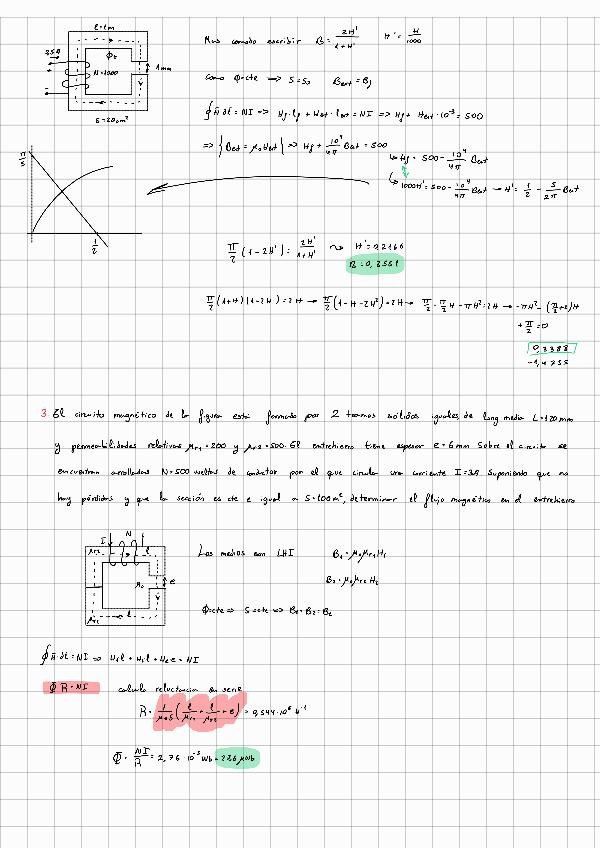 l=1m
Mas comodo escribir B = 2H'/(1+H') H' = H/1000
Φt
N=1000
1mm
como Φ=cte => S=So Bent = Bf
S=20cm²
∮H·dl = NI => Hf·lf + Hent·lent = NI => Hf + Hent·10⁻³ = 500
=> {Bent = μ₀Hent} => Hf + 10⁴/4π Bent = 500
Hf = 500 - 10⁴/4π Bent
1000H' = 500 - 10⁴/4π Bent → H' = 1/2 - 5/2π Bent
π/5
1/2
π/2 (1-2H') = 2H'/(1+H') ~> H' = 0,2166
B = 0,3551
π/2 (1+H)(1-2H) = 2H → π/2 (1-H-2H²) = 2H → π/2 - π/2 H - πH² = 2H → -πH² - (π/2+2)H
+ π/2 = 0
0,3388
-1,4755
3. El circuito magnético de la figura está formado por 2 tramos sólidos iguales, de long media L=120mm
y permeabilidades relativas μr1=200 y μr2=500. El entrehierro tiene espesor e=6mm Sobre el circuito se
encuentran arrolladas N=500 vueltas de conductor por el que circula una corriente I=3A Suponiendo que no
hay pérdidas y que la sección es cte e igual a S=100m², determinar el flujo magnético en el entrehierro
I N
μr1 l
μ₀ e
μr2 l
Los medios son LHI B₁ = μ₀μr1H₁
B₂ = μ₀μr2H₂
Φ=cte => S=cte => B₁=B₂=Be
∮H·dl = NI => H₁l + H₂l + Hee = NI
Φ R = NI calculo reluctancia en serie
R = 1/μ₀S (l/μr1 + l/μr2 + e) = 0,544·10⁶ H⁻¹
Φ = NI/R = 2,76·10⁻³ Wb = 276 μWb